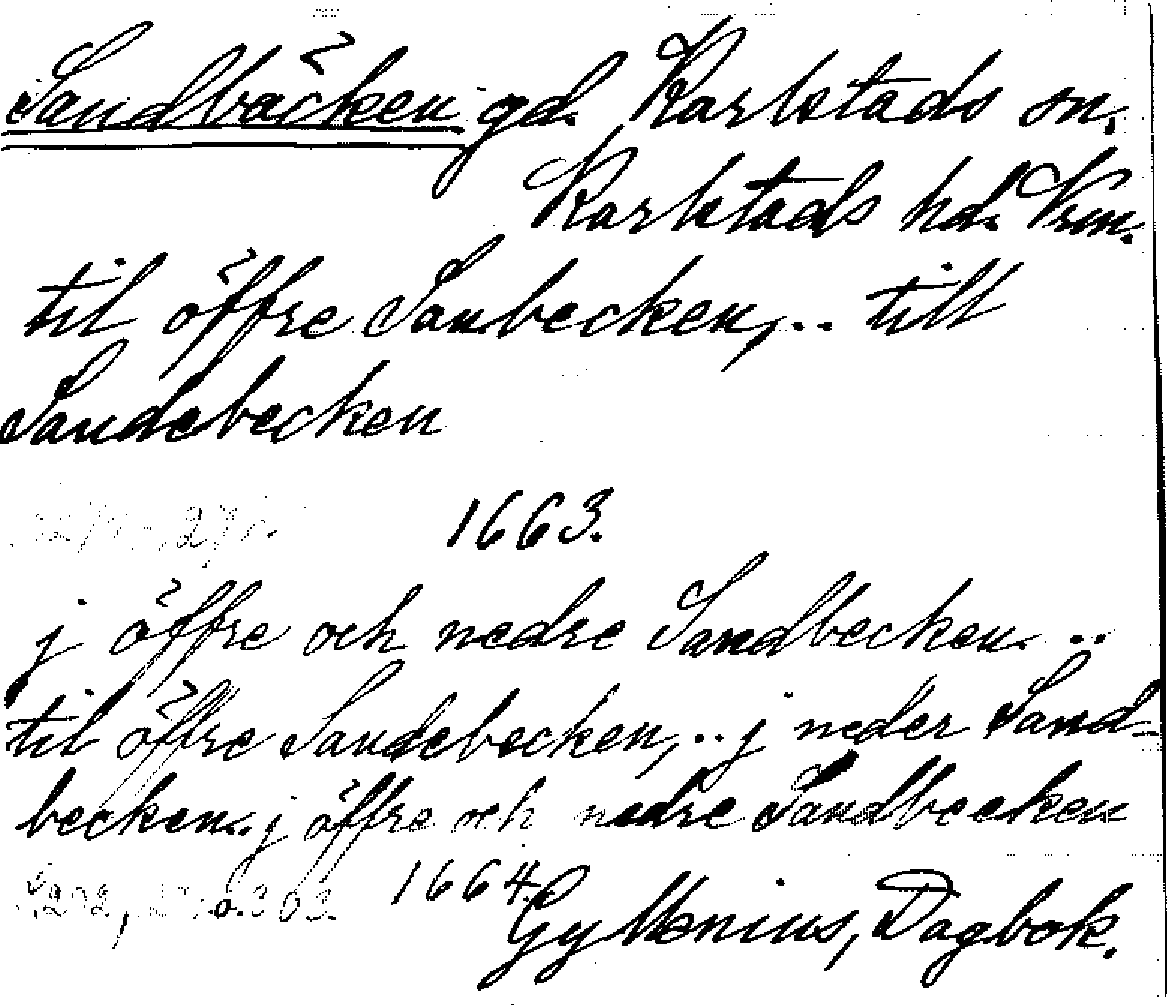 Sandbäcken gd. Karlstads sn.
Karlstads hd. Vrm.
til öffre Sanbecken,.. till
Sandebecken
1663.
j öffre och nedre Sandbecken...
til öffre Sandebecken,.. j neder Sand-
becken.. j öffre och nedre Sandbecken
1664.
Gyllenius, Dagbok.